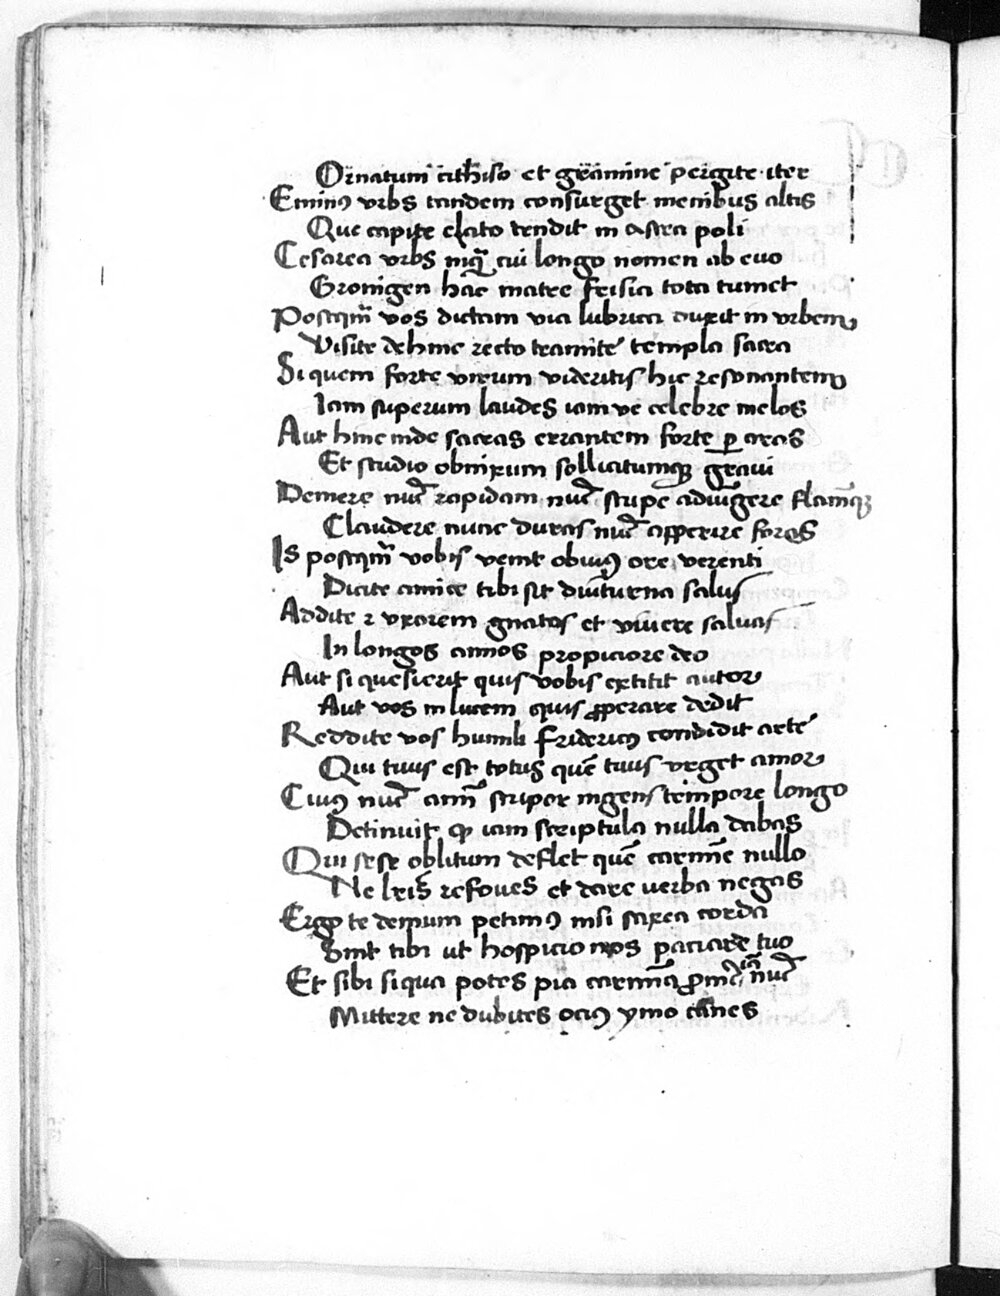 Ornatum cithiso et gramine pergite iter
Eminꝰ vrbs tandem consurget menibus altis
Que capite elato tendit in astra poli
Cesarea vrbs inqͣ cui longo nomen ab euo
Gronigen hac matre frisia tota tumet
Postqm̃ vos dictam via lubrica duxit in vrbem
Visite dehinc recto tramite templa sacra
Si quem forte virum videritis hic resonantem
Iam superum laudes iam ve celebre melos
Aut hinc inde sacras errantem forte ꝑ aras
Et studio obnixum sollicitumqꝫ graui
Demere nũc rapidam nũc stupe adiũgere flamãqꝫ
Claudere nunc duras nũc apperire fores
Is postqm̃ vobis venit obuiꝰ ore verenti
Dicite amice tibi sit diuturna salus
Addite ꝛ vxorem gnatos et viuere saluas
In longos annos propiciore deo
Aut si quesierit quis vobis extitit autor
Aut vos in lucem quis ꝓperare dedit
Reddite vos humili fridericꝰ condidit arte
Qui tuus est totus quẽ tuus vrget amor
Cuiꝰ nũc anm̃ stupor ingens tempore longo
Detinuit ꝙ iam scriptula nulla dabas
Qui sese oblitum deflet quẽ carmĩe nullo
Ne lr̃is refoues et dare verba negas
Ergo te demum petimꝰ nisi saxea corda
Sint tibi ut hospicio nos paciare tuo
Et sibi siqua potes pia carmĩa nũc
Mittere ne dubites ociꝰ ymo canes